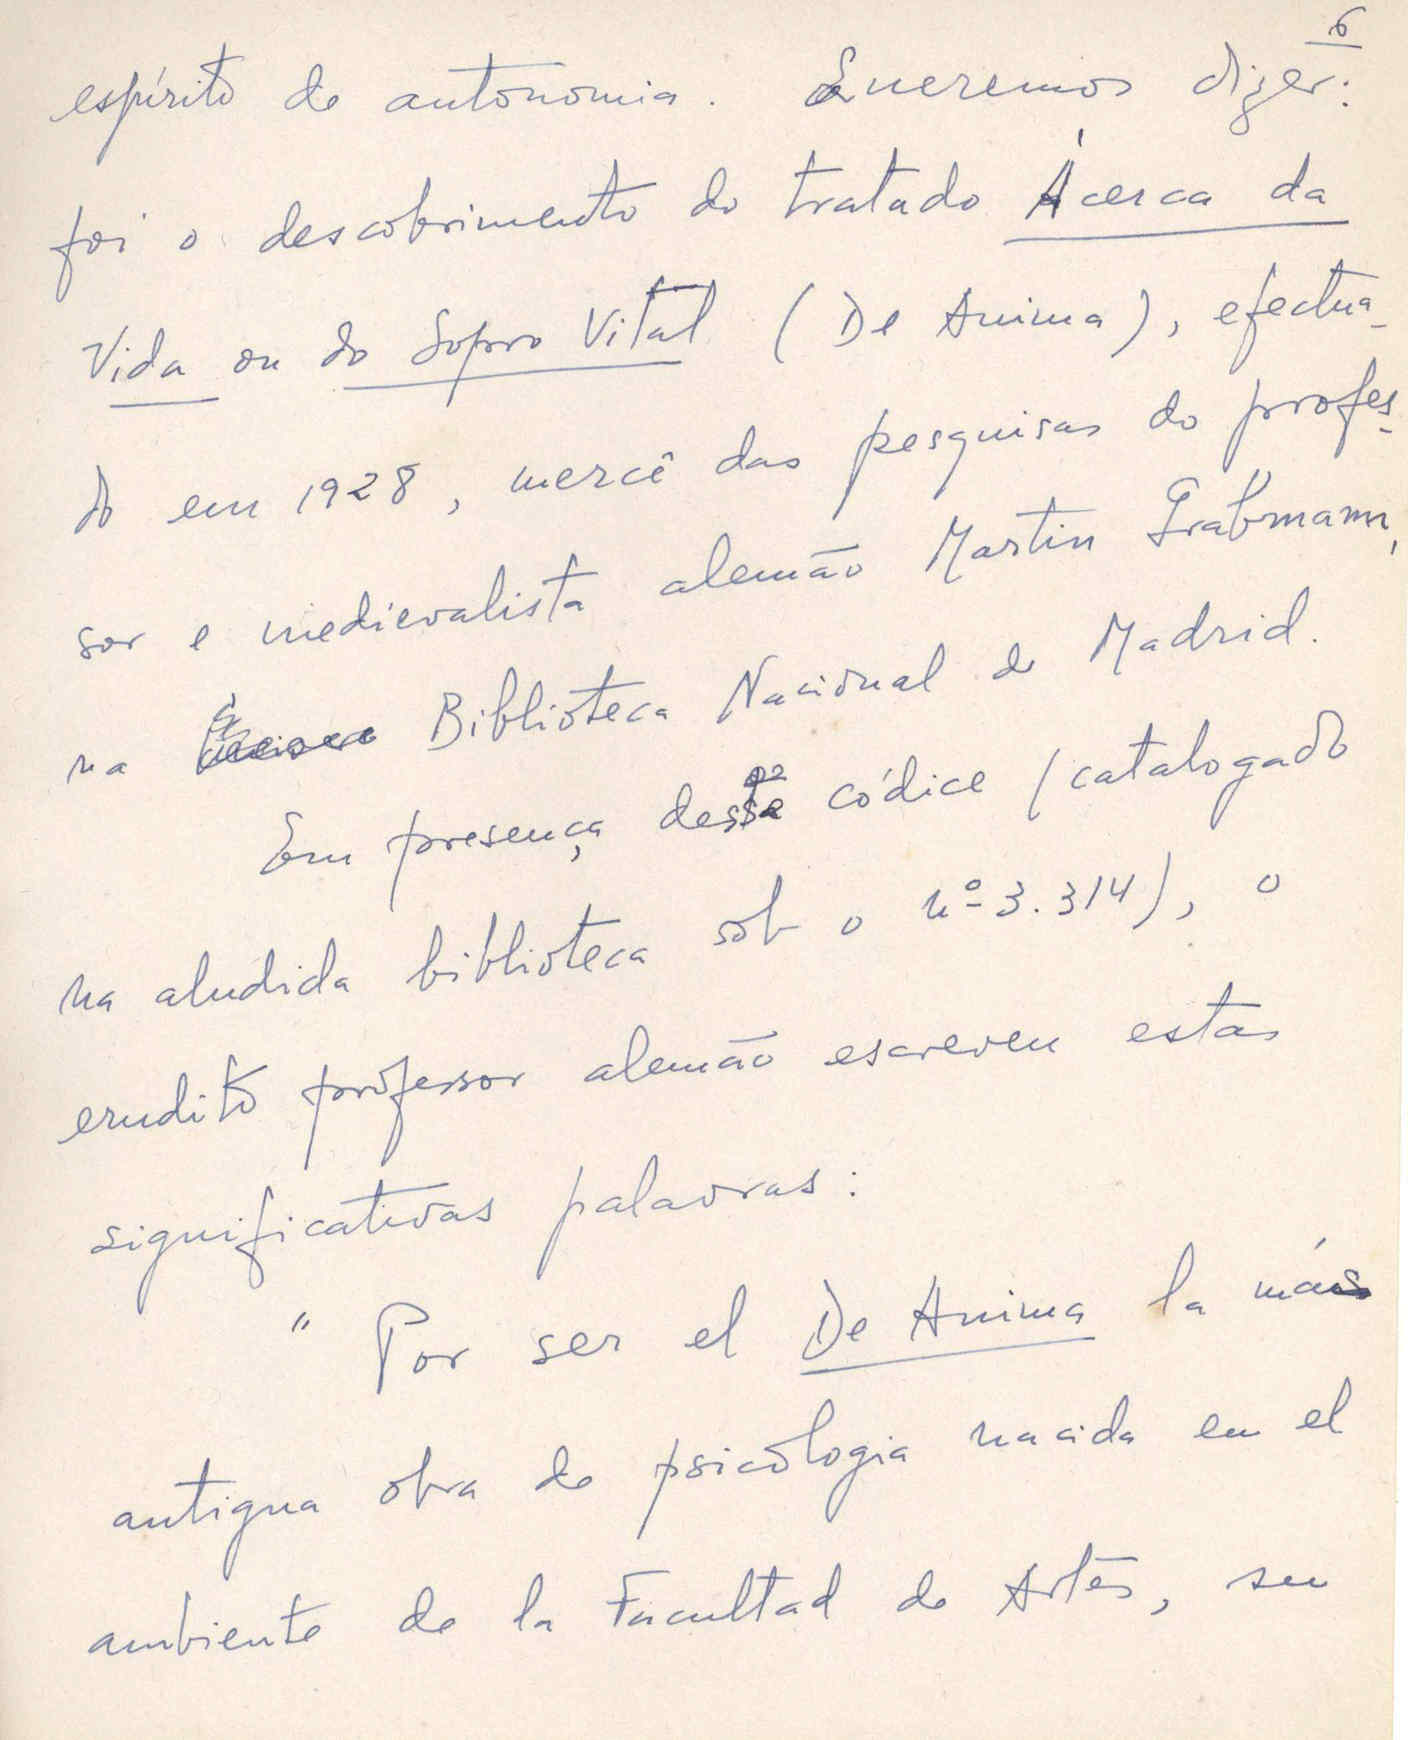 6
espírito de autonomia. Queremos dizer:
foi o descobrimento do tratado Ácerca da
Vida ou do Sopro Vital (De Anima), efectua-
do em 1928, mercê das pesquisas do profes-
sor e medievalista alemão Martin Grabmann,
na Biblioteca Nacional de Madrid.
Em presença deste códice (catalogado
na aludida biblioteca sob o nº 3.314), o
erudito professor alemão escreveu estas
significativas palavras:
" Por ser el De Anima la más
antigua obra de psicologia nacida en el
ambiente de la Facultad de Artes, su